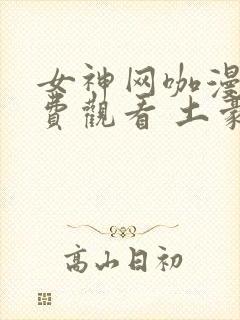 女神网咖漫
費觀看 土豪
高山日初